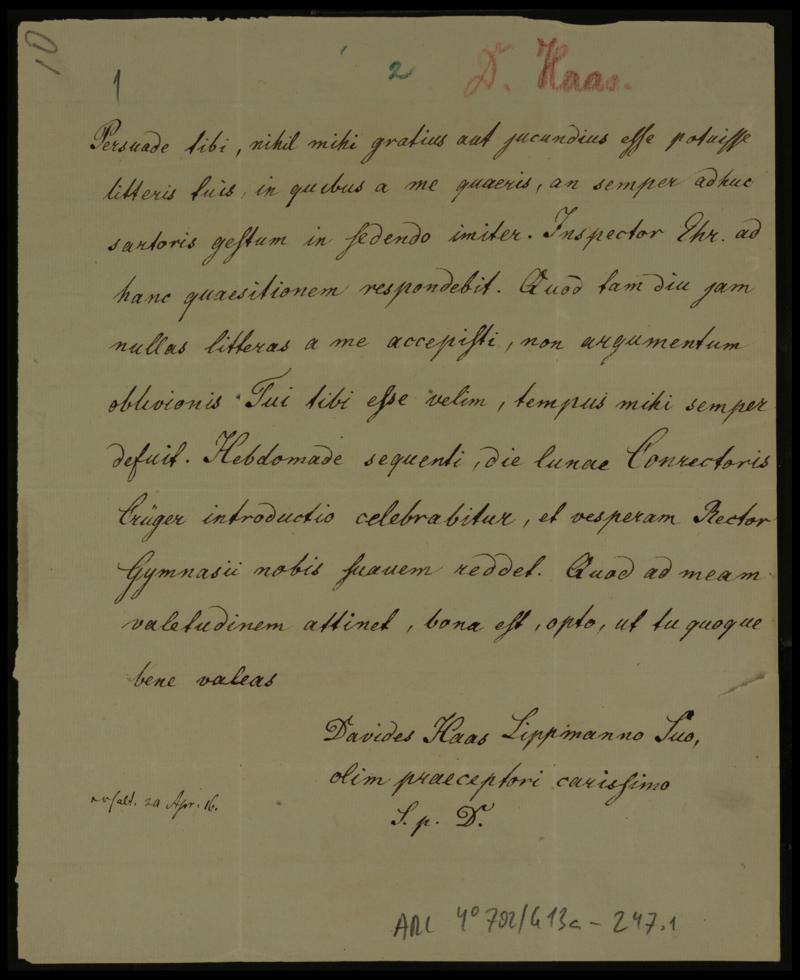 10
1 2 Dr. Haas.
Persuade tibi, nihil mihi gratius aut jucundius esse potuisse
litteris tuis, in quibus a me quaeris, an semper adhuc
sartoris gestum in sedendo imiter. Inspector Ehr. ad
hanc quaesitionem respondebit. Quod tam diu jam
nullas litteras a me accepisti, non argumentum
oblivionis Tui tibi esse velim, tempus mihi semper
defuit. Hebdomade sequenti, die lunae Conrectoris
Crüger introductio celebrabitur, et vesperam Rector
Gymnasii nobis suavem reddet. Quod ad meam
valetudinem attinet, bona est, opto, ut tu quoque
bene valeas
Davides Haas Lippmanno Suo,
olim praeceptori carissimo
S. p. D.
Apr. 16.
ARC 4° 792/G13a-247.1